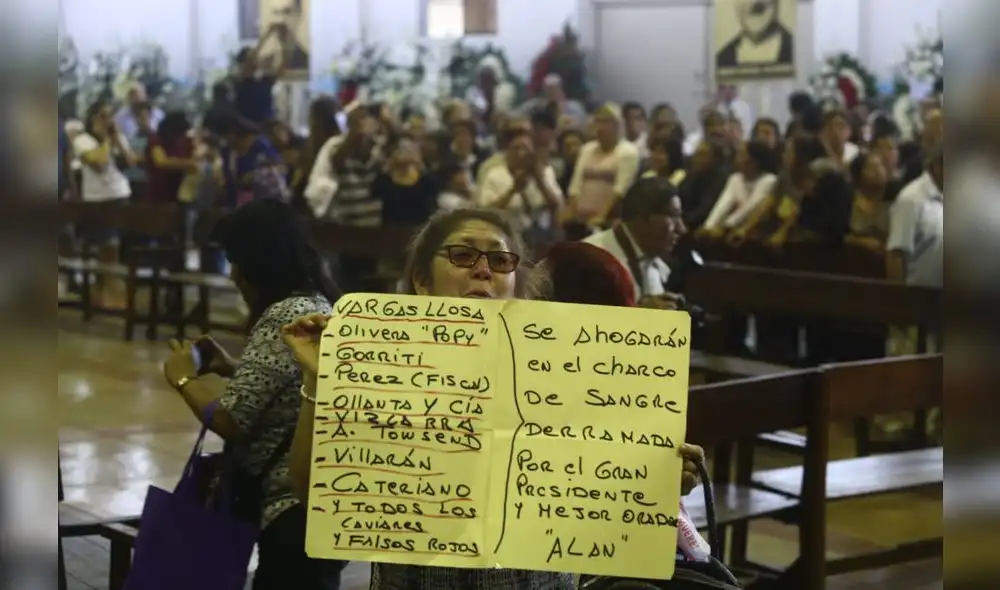 VARGAS LLOSA
OLIVERA "POPY"
- GORRITI
- PEREZ (FISCAL)
- Ollanta y Cía
- VIZCARRA
- A. TOWSEND
- VILLARÁN
- CATERIANO
- Y TODOS LOS
CAVIARES
Y FALSOS ROJOS
SE AHOGARÁN
EN EL CHARCO
DE SANGRE
DERRAMADA
POR EL GRAN
PRESIDENTE
Y MEJOR ORADOR
"ALAN"